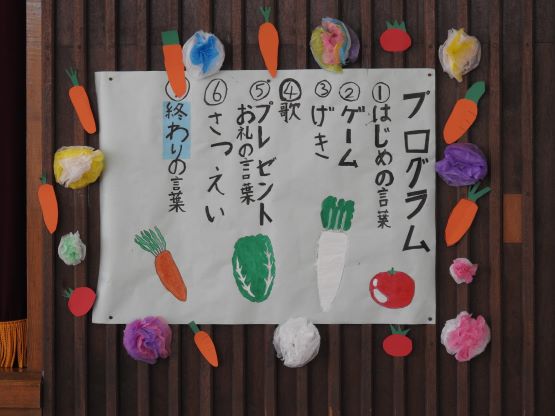 プログラム
①はじめの言葉
②ゲーム
③げき
④歌
⑤プレゼント
お礼の言葉
⑥さつえい
終わりの言葉